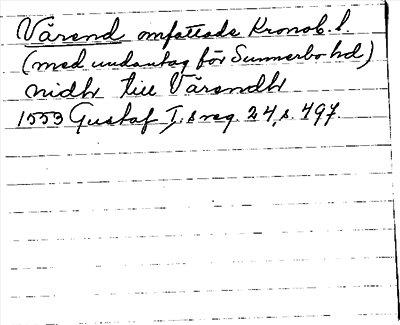 Värend omfattade Kronob. l.
(med undantag för Sunnerbo hd)
nidh till Värendh
1553 Gustaf I:s reg. 24, s. 497.